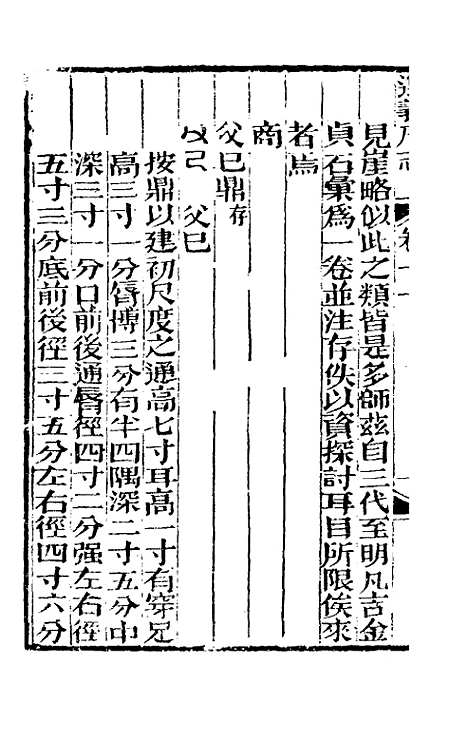 遵義府志 卷十一
見崖略似此之類皆是多師茲自三代至明凡吉金
貞石彙爲一卷並注存佚以資探討耳目所限俟來
者焉
商
父已鼎存
父已
按鼎以建初尺度之通高七寸耳高一寸有穿足
高三寸一分脣博三分有半四隅深二寸五分中
深三寸一分口前後通脣徑四寸二分强左右徑
五寸二分底前後徑三寸五分左右徑四寸六分